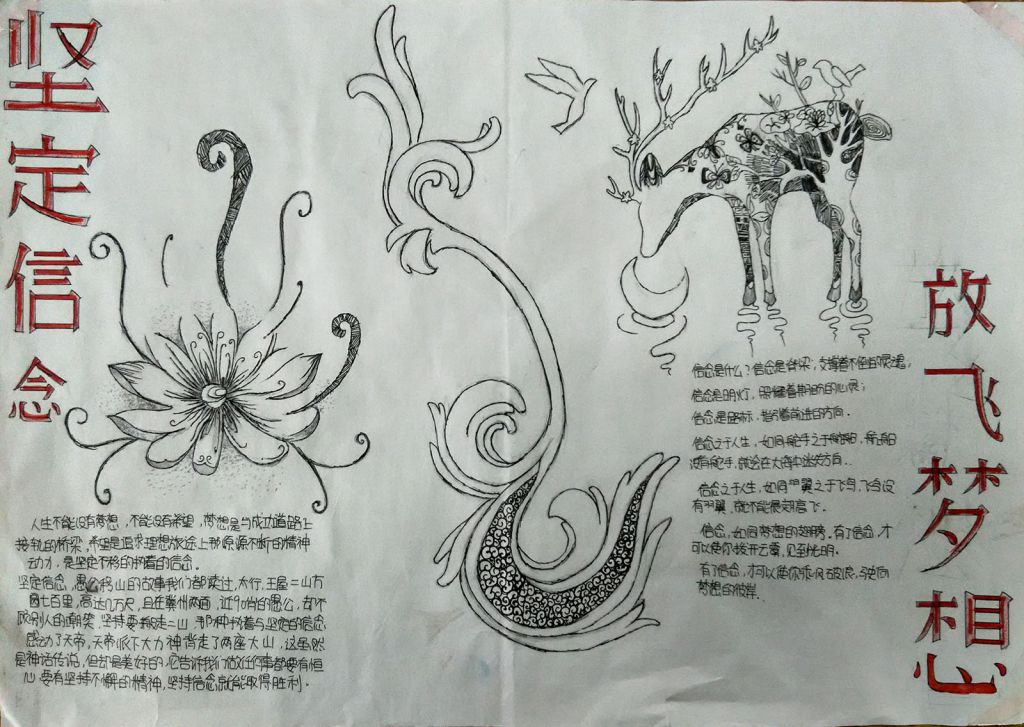 坚定信念
放飞梦想
人生不能没有梦想,不能没有希望,梦想是与成功道路上
接轨的桥梁,希望是追求理想旅途上那源源不断的精神
动力,是坚定不移的执着的信念。
坚定信念,愚公移山的故事我们都读过,太行,王屋二山方
圆七百里,高达几万尺,且在冀州两面,近90岁的愚公,却不
顾别人的嘲笑,坚持要搬走二山,那种执着与坚定的信念
感动了天帝,天帝派下大力神背走了两座大山,这虽然
是神话传说,但却是美好的,它告诉我们做任何事都要有恒
心,要有坚持不懈的精神,坚持信念就能取得胜利。
信念是什么?信念是脊梁,支撑着不倒的灵魂;
信念是明灯,照耀着期盼的心灵;
信念是路标,指引着前进的方向。
信念之于人生,如同舵手之于船舶,船舶
没有舵手,就会在大海中迷失方向。
信念之于人生,如同羽翼之于飞鸟,飞鸟没
有羽翼,就不能展翅高飞。
信念,如同梦想的翅膀,有了信念,才
可以使你拨开云雾,见到光明。
有了信念,才可以使你乘风破浪,驶向
梦想的彼岸。